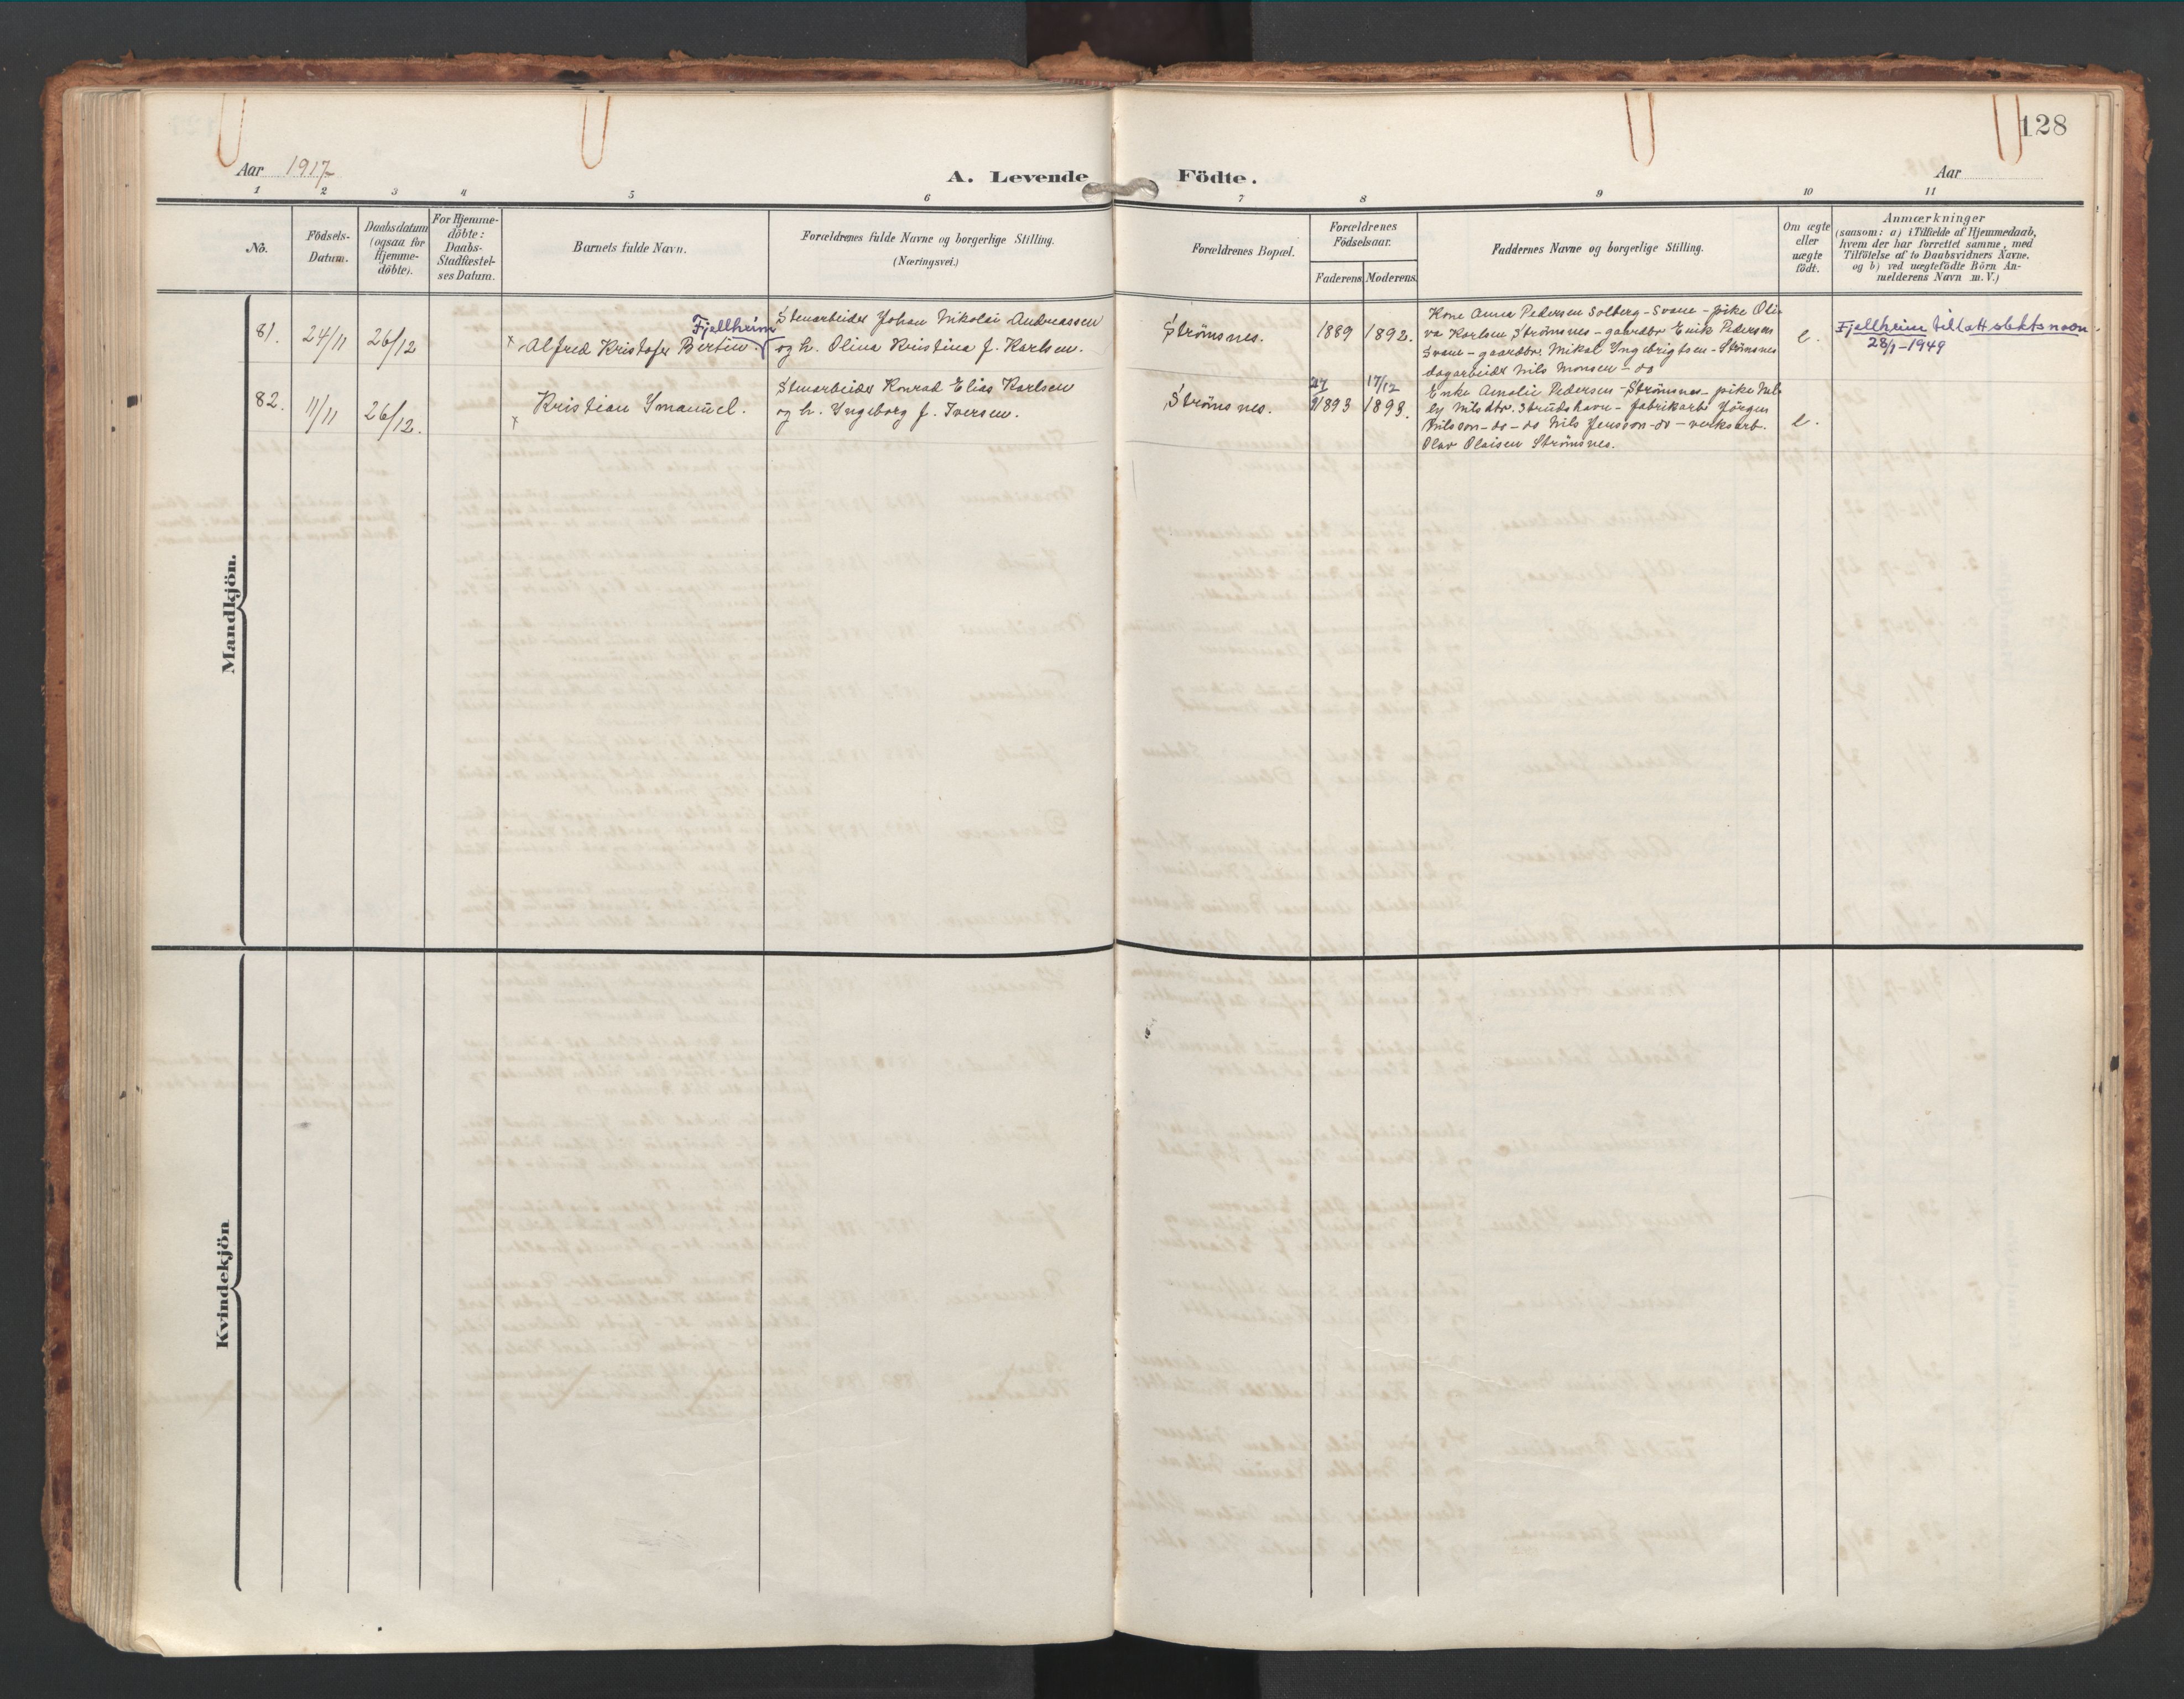 128
Aar 1917
A. Levende Födte.
Aar
1 2 3 4 5 6 7 8 9 10 11
No.
Födsels-
Datum.
Daabsdatum
(ogsaa for
Hjemme-
döbte).
For Hjemme-
döbte:
Daabs-
Stadfæstel-
ses Datum.
Barnets fulde Navn.
Forældrenes fulde Navne og borgerlige Stilling.
(Næringsvei.)
Forældrenes Bopæl.
Forældrenes
Födselsaar.
Faderens Moderens.
Faddernes Navne og borgerlige Stilling.
Om ægte
eller
uægte
födt.
Anmærkninger
(saasom: a) i Tilfælde af Hjemmedaab,
hvem der har forrettet samme, med
Tilföielse af to Daabsvidners Navne.
og b) ved uægtefödte Börn An-
melderens Navn m. V.)
Mandkjön.
81. 24/11 26/12
Fjellheim
x Alfred Kristofer Bertin.
Stenarbeider Johan Nikolai Andreassen
og h. Olina Kristina f. Karlsen.
Strömsnes.
1889 1892.
Kone Anna Pedersen Solberg - Svane - pike Oli-
va Karlsen Strömsnes - gaardbr Enik Pedersen
Svane - gaardbr. Mikal Yngebrigtsen - Strömsnes
dagarbeider Nils Monsen - do
e.
Fjellheim tillatt slektsnavn.
28/1-1949
82. 11/11 26/12.
x Kristian Ymanuel.
Stenarbeider Konrad Elias Karlsen
og h. Yngeborg f. Iversen.
Strömsnes.
1893 17/12 1893.
Enke Amalie Pedersen - Strömsnes - pike Nel-
ly Nilsdtr. Strudshavn - fabrikarb Jörgen
Nilsson - do - do Nils Jensson - do - verksarb.
Olav Olaisen Strömsnes.
e.
Kvindekjön